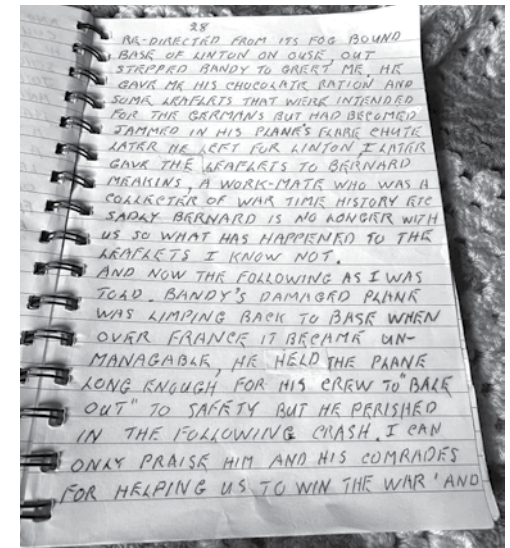 28
RE-DIRECTED FROM ITS FOG BOUND
BASE OF LINTON ON OUSE, OUT
STEPPED BANDY TO GREET ME. HE
GAVE ME HIS CHOCOLATE RATION AND
SOME LEAFLETS THAT WERE INTENDED
FOR THE GERMANS BUT HAD BECOMED
JAMMED IN HIS PLANE'S FLARE CHUTE
LATER HE LEFT FOR LINTON, I LATER
GAVE THE LEAFLETS TO BERNARD
MEAKINS, A WORK-MATE WHO WAS A
COLLECTER OF WAR TIME HISTORY ETC
SADLY BERNARD IS NO LONGER WITH
US SO WHAT HAS HAPPENED TO THE
LEAFLETS I KNOW NOT.
AND NOW THE FOLLOWING AS I WAS
TOLD. BANDY'S DAMAGED PLANE
WAS LIMPING BACK TO BASE WHEN
OVER FRANCE IT BECAME UN-
MANAGABLE, HE HELD THE PLANE
LONG ENOUGH FOR HIS CREW TO "BALE
OUT" TO SAFETY BUT HE PERISHED
IN THE FOLLOWING CRASH. I CAN
ONLY PRAISE HIM AND HIS COMRADES
FOR HELPING US TO WIN THE WAR 'AND